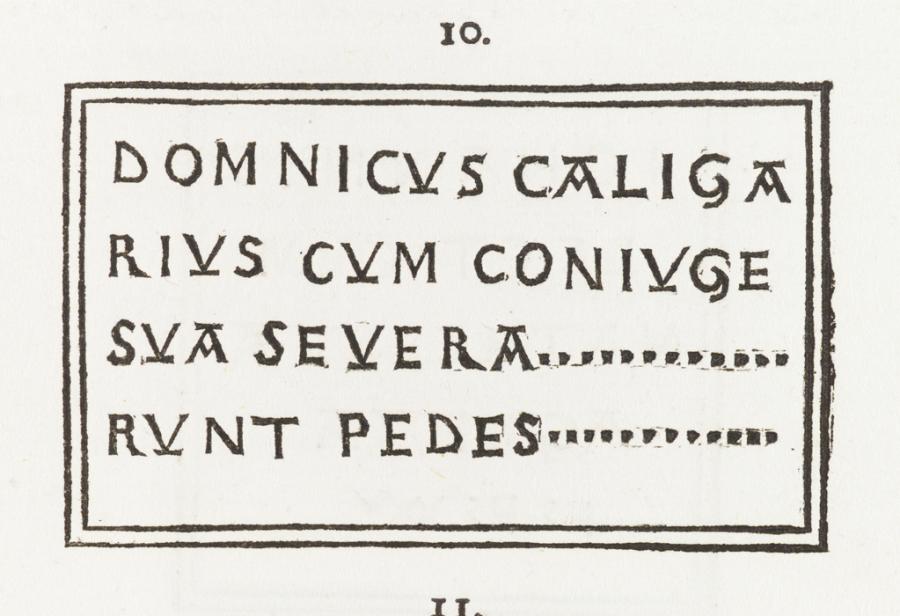 10.
DOMNICVS CALIGA
RIVS CVM CONIVGE
SVA SEVERA..............
RVNT PEDES..............
11.